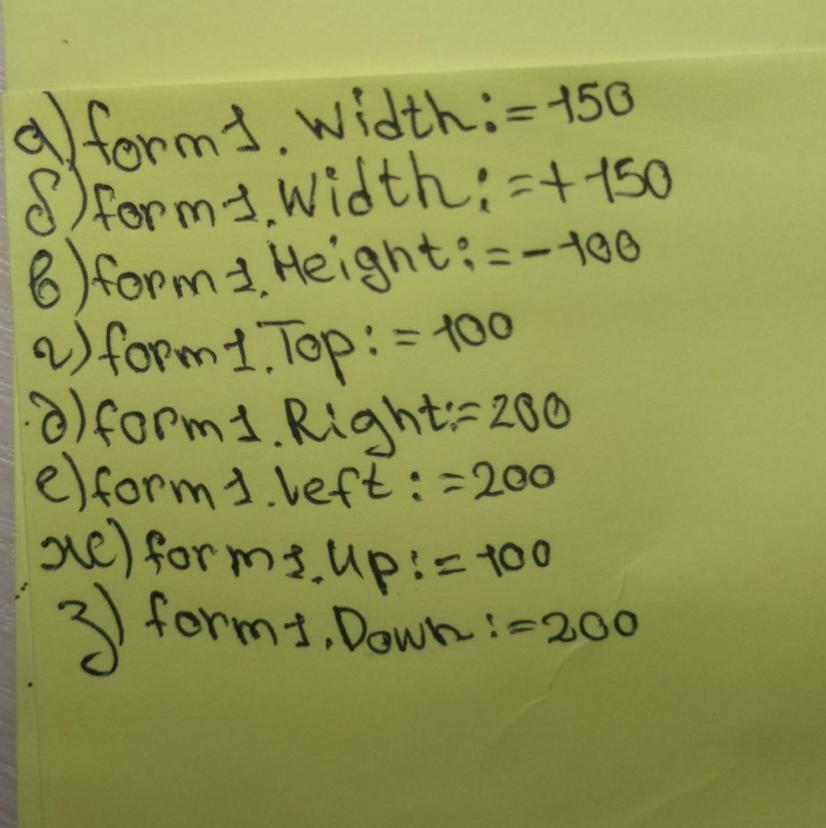 а) form1. Width:=150
б) form1.Width:=+150
в) form1.Height:=-100
г) form1.Top:=100
д) form1.Right:=200
е) form1.left:=200
ж) form1.Up:=100
з) form1.Down:=200